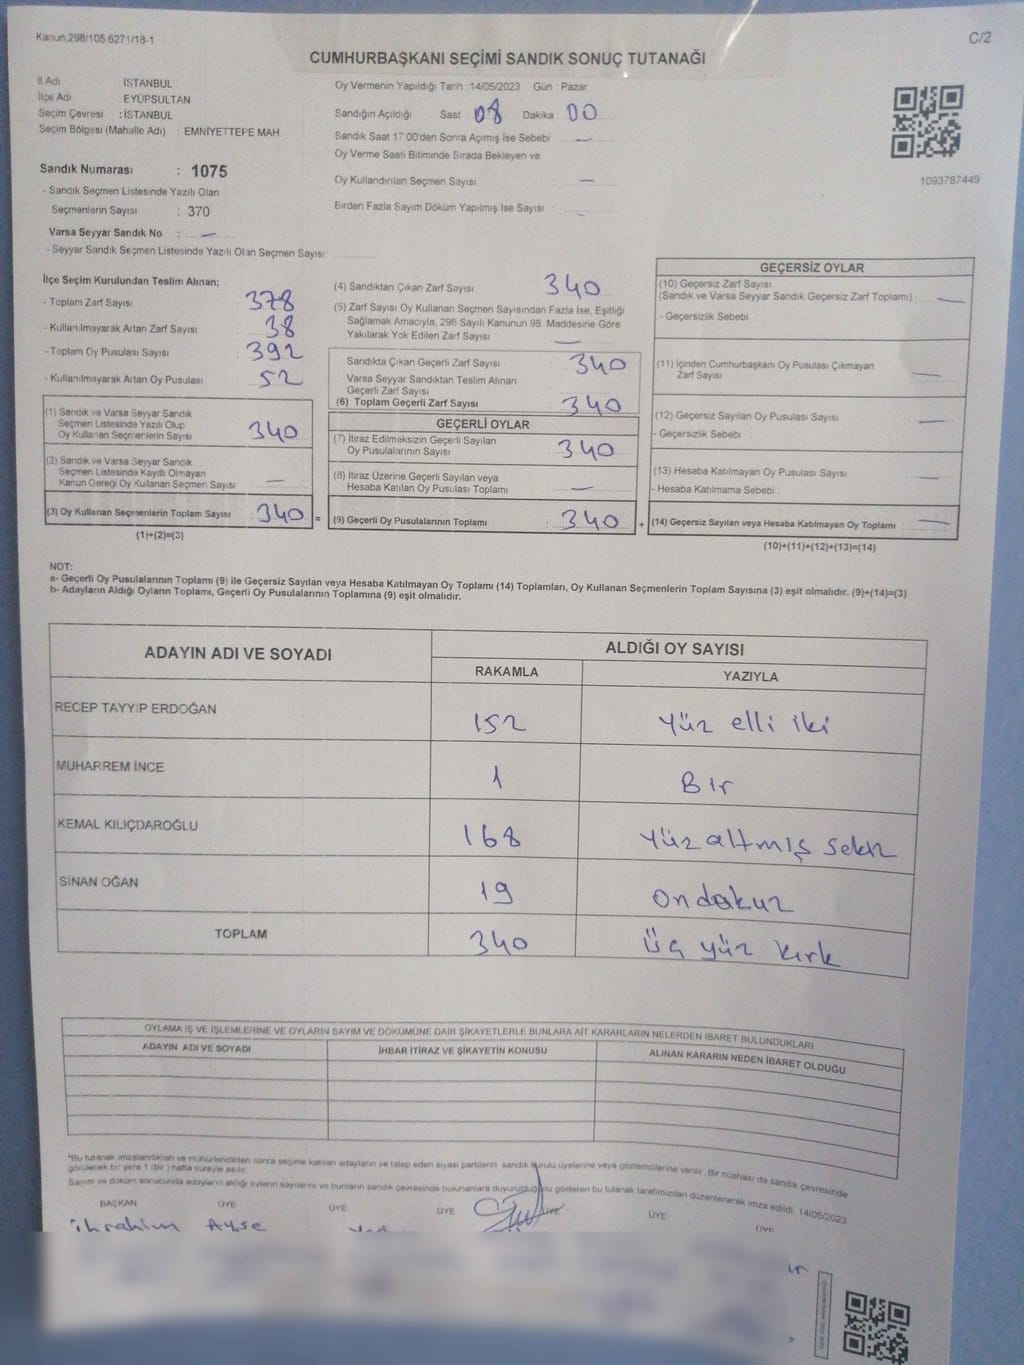 Kanun:298/105 6271/18-1
C/2
CUMHURBAŞKANI SEÇİMİ SANDIK SONUÇ TUTANAĞI
İl Adı : İSTANBUL
İlçe Adı : EYÜPSULTAN
Seçim Çevresi : İSTANBUL
Seçim Bölgesi (Mahalle Adı) : EMNİYETTEPE MAH.
Sandık Numarası : 1075
- Sandık Seçmen Listesinde Yazılı Olan
Seçmenlerin Sayısı : 370
Varsa Seyyar Sandık No : —
- Seyyar Sandık Seçmen Listesinde Yazılı Olan Seçmen Sayısı
Oy Vermenin Yapıldığı Tarih :14/05/2023 Gün : Pazar
Sandığın Açıldığı Saat 08 Dakika : 00
Sandık Saat 17:00'den Sonra Açılmış İse Sebebi : —
Oy Verme Saati Bitiminde Sırada Bekleyen ve
Oy Kullandırılan Seçmen Sayısı : —
Birden Fazla Sayım Döküm Yapılmış İse Sayısı : —
1093787449
İlçe Seçim Kurulundan Teslim Alınan;
- Toplam Zarf Sayısı : 378
- Kullanılmayarak Artan Zarf Sayısı : 38
- Toplam Oy Pusulası Sayısı : 392
- Kullanılmayarak Artan Oy Pusulası : 52
(1) Sandık ve Varsa Seyyar Sandık
Seçmen Listesinde Yazılı Olup
Oy Kullanan Seçmenlerin Sayısı : 340
(2) Sandık ve Varsa Seyyar Sandık
Seçmen Listesinde Kayıtlı Olmayan
Kanun Gereği Oy Kullanan Seçmen Sayısı : —
(3) Oy Kullanan Seçmenlerin Toplam Sayısı : 340 =
(1)+(2)=(3)
(4) Sandıktan Çıkan Zarf Sayısı : 340
(5) Zarf Sayısı Oy Kullanan Seçmen Sayısından Fazla İse, Eşitliği
Sağlamak Amacıyla, 298 Sayılı Kanunun 98. Maddesine Göre
Yakılarak Yok Edilen Zarf Sayısı : —
Sandıkta Çıkan Geçerli Zarf Sayısı : 340
Varsa Seyyar Sandıktan Teslim Alınan
Geçerli Zarf Sayısı
(6) Toplam Geçerli Zarf Sayısı : 340
GEÇERLİ OYLAR
(7) İtiraz Edilmeksizin Geçerli Sayılan
Oy Pusulalarının Sayısı : 340
(8) İtiraz Üzerine Geçerli Sayılan veya
Hesaba Katılan Oy Pusulası Toplamı : —
(9) Geçerli Oy Pusulalarının Toplamı : 340 +
GEÇERSİZ OYLAR
(10) Geçersiz Zarf Sayısı
(Sandık ve Varsa Seyyar Sandık Geçersiz Zarf Toplamı) : —
- Geçersizlik Sebebi :
(11) İçinden Cumhurbaşkanı Oy Pusulası Çıkmayan
Zarf Sayısı : —
(12) Geçersiz Sayılan Oy Pusulası Sayısı : —
- Geçersizlik Sebebi :
(13) Hesaba Katılmayan Oy Pusulası Sayısı : —
- Hesaba Katılmama Sebebi :
(14) Geçersiz Sayılan veya Hesaba Katılmayan Oy Toplamı : —
(10)+(11)+(12)+(13)=(14)
NOT:
a- Geçerli Oy Pusulalarının Toplamı (9) ile Geçersiz Sayılan veya Hesaba Katılmayan Oy Toplamı (14) Toplamları, Oy Kullanan Seçmenlerin Toplam Sayısına (3) eşit olmalıdır. (9)+(14)=(3)
b- Adayların Aldığı Oyların Toplamı, Geçerli Oy Pusulalarının Toplamına (9) eşit olmalıdır.
ADAYIN ADI VE SOYADI
ALDIĞI OY SAYISI
RAKAMLA YAZIYLA
RECEP TAYYİP ERDOĞAN 152 Yüz elli iki
MUHARREM İNCE 1 Bir
KEMAL KILIÇDAROĞLU 168 Yüz altmış sekiz
SİNAN OĞAN 19 on dokuz
TOPLAM 340 Üç yüz kırk
OYLAMA İŞ VE İŞLEMLERİNE VE OYLARIN SAYIM VE DÖKÜMÜNE DAİR ŞİKAYETLERLE BUNLARA AİT KARARLARIN NELERDEN İBARET BULUNDUKLARI
ADAYIN ADI VE SOYADI İHBAR İTİRAZ VE ŞİKAYETİN KONUSU ALINAN KARARIN NEDEN İBARET OLDUĞU
*Bu tutanak imzalandıktan ve mühürlendikten sonra seçime katılan adayların ve talep eden siyasi partilerin sandık kurulu üyelerine veya gözlemcilerine verilir. Bir nüshası da sandık çevresinde
görülecek bir yere 1 (bir) hafta süreyle asılır.
Sayım ve döküm sonucunda adayların aldığı oyların sayılarını ve bunların sandık çevresinde bulunanlara duyurulduğunu gösteren bu tutanak tarafımızdan düzenlenerek imza edildi. 14/05/2023
BAŞKAN ÜYE ÜYE ÜYE ÜYE ÜYE ÜYE
İbrahim Ayşe